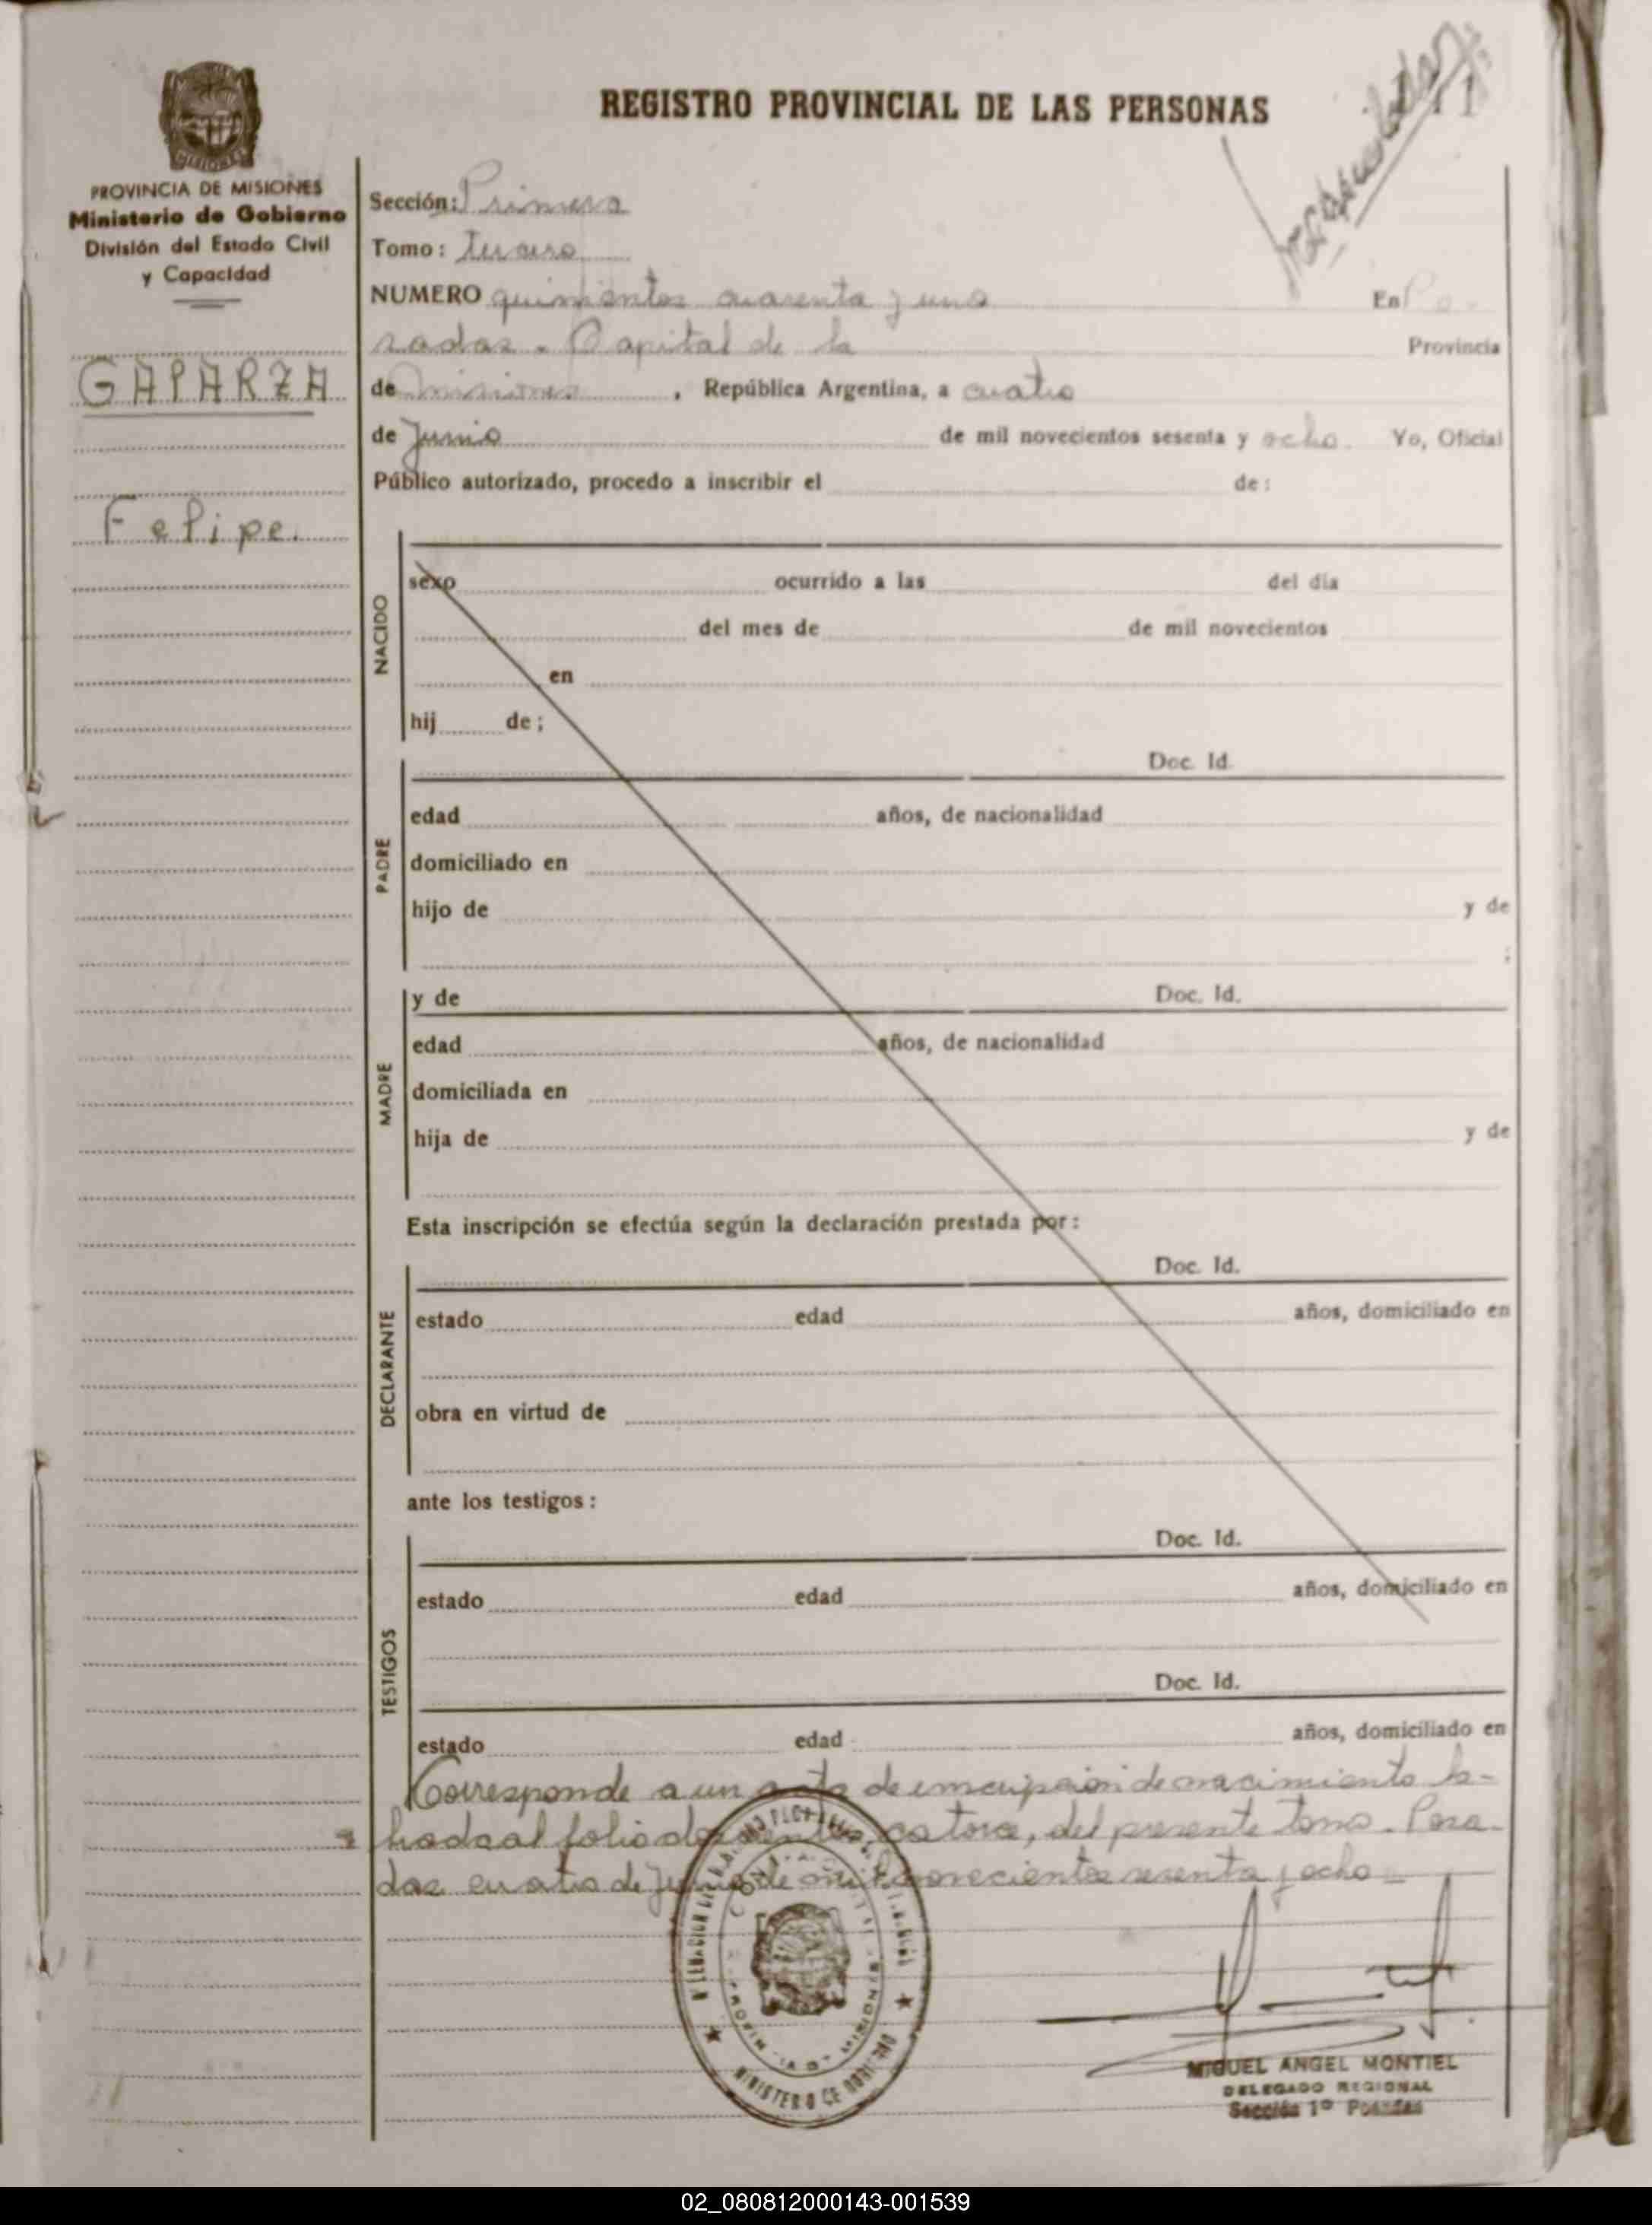 REGISTRO PROVINCIAL DE LAS PERSONAS
PROVINCIA DE MISIONES
Ministerio de Gobierno
División del Estado Civil
y Capacidad
GAPARZA
Felipe
Sección: Primera
Tomo: tercero
NUMERO quinientos cuarenta y uno En Po-
sadas - Capital de la Provincia
de Misiones, República Argentina, a cuatro
de Junio de mil novecientos sesenta y ocho. Yo, Oficial
Público autorizado, procedo a inscribir el de:
NACIDO
sexo ocurrido a las del día
del mes de de mil novecientos
en
hij de;
PADRE
Doc. Id.
edad años, de nacionalidad
domiciliado en
hijo de y de
;
MADRE
y de Doc. Id.
edad años, de nacionalidad
domiciliada en
hija de y de
Esta inscripción se efectúa según la declaración prestada por:
DECLARANTE
Doc. Id.
estado edad años, domiciliado en
obra en virtud de
ante los testigos:
TESTIGOS
Doc. Id.
estado edad años, domiciliado en
Doc. Id.
estado edad años, domiciliado en
Corresponde a un acta de inscripción de nacimiento la-
brada al folio doscientos catorce, del presente tomo. Posa-
das cuatro de Junio de mil novecientos sesenta y ocho
MINISTERIO DE GOBIERNO
MISIONES
MIGUEL ANGEL MONTIEL
DELEGADO REGIONAL
Sección 1º Posadas
02_080812000143-001539